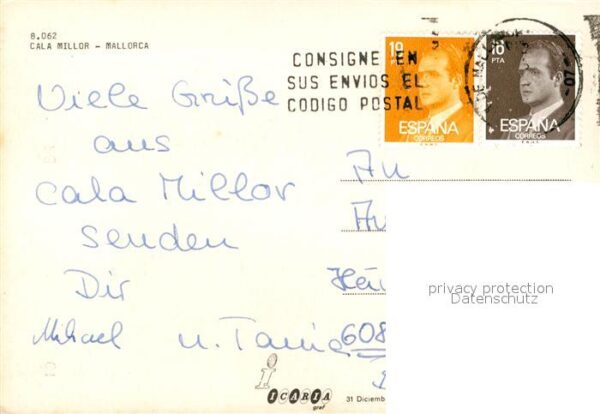 8.062
CALA MILLOR - MALLORCA
CONSIGNE EN
SUS ENVIOS EL
CODIGO POSTAL
19
PTA
ESPAÑA
CORREOS
16
PTA
ESPAÑA
CORREOS
DE MALLORCA
07
Viele Grüße
aus
Cala Millor
senden
Dir
Mihael u. Tania
An
608
privacy protection
Datenschutz
i
ICARIA
graf
31 Diciemb